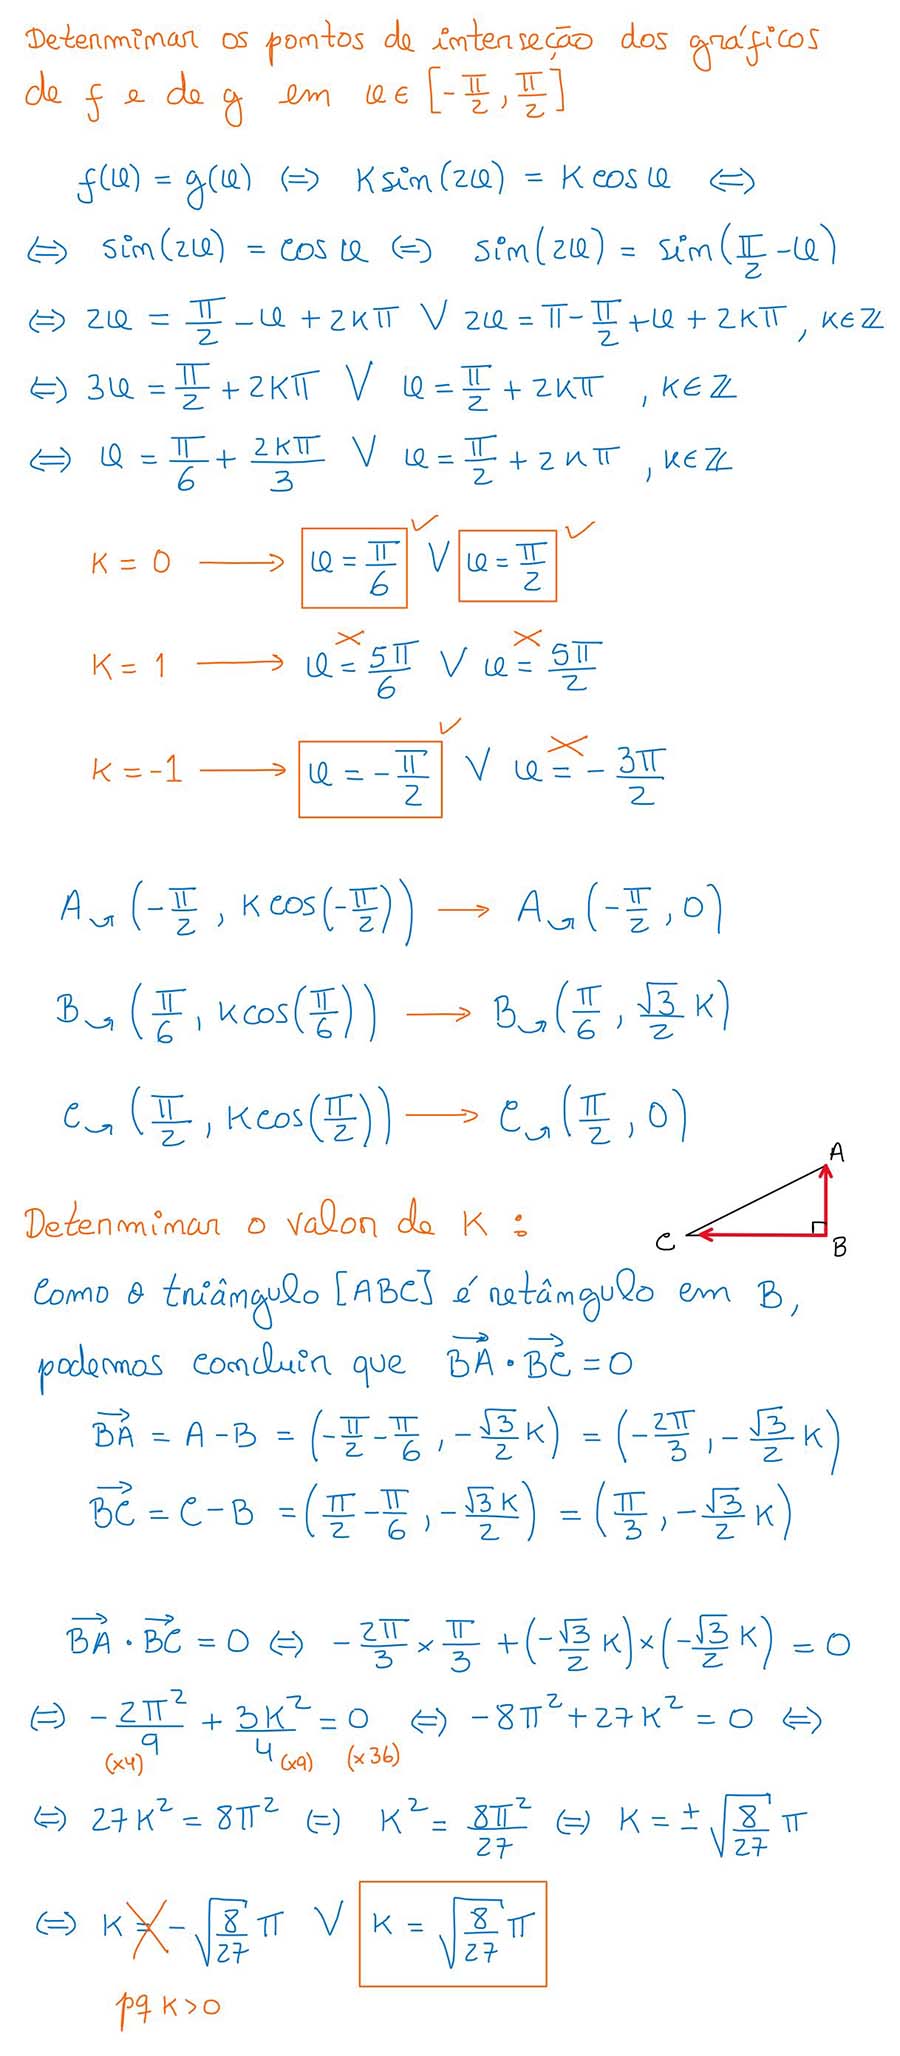 Determinar os pontos de interseção dos gráficos
de f e de g em x ∈ [-π/2, π/2]
f(x) = g(x) ⇔ K sin(2x) = K cos x ⇔
⇔ sin(2x) = cos x ⇔ sin(2x) = sin(π/2 - x)
⇔ 2x = π/2 - x + 2kπ ∨ 2x = π - π/2 + x + 2kπ, k∈ℤ
⇔ 3x = π/2 + 2kπ ∨ x = π/2 + 2kπ, k∈ℤ
⇔ x = π/6 + 2kπ/3 ∨ x = π/2 + 2kπ, k∈ℤ
K = 0 → x = π/6 ✓ ∨ x = π/2 ✓
K = 1 → x = 5π/6 ✗ ∨ x = 5π/2 ✗
K = -1 → x = -π/2 ✓ ∨ x = -3π/2 ✗
A↪(-π/2, K cos(-π/2)) → A↪(-π/2, 0)
B↪(π/6, K cos(π/6)) → B↪(π/6, √3/2 K)
C↪(π/2, K cos(π/2)) → C↪(π/2, 0)
A
C
B
Determinar o valor de K :
Como o triângulo [ABC] é retângulo em B,
podemos concluir que BA⃗ · BC⃗ = 0
BA⃗ = A - B = (-π/2 - π/6, -√3/2 K) = (-2π/3, -√3/2 K)
BC⃗ = C - B = (π/2 - π/6, -√3K/2) = (π/3, -√3/2 K)
BA⃗ · BC⃗ = 0 ⇔ -2π/3 × π/3 + (-√3/2 K) × (-√3/2 K) = 0
⇔ -2π²/9 + 3K²/4 = 0 ⇔ -8π² + 27K² = 0 ⇔
(×4) (×9) (×36)
⇔ 27K² = 8π² ⇔ K² = 8π²/27 ⇔ K = ±√(8/27) π
⇔ K = -√(8/27) π ∨ K = √(8/27) π
pq K > 0